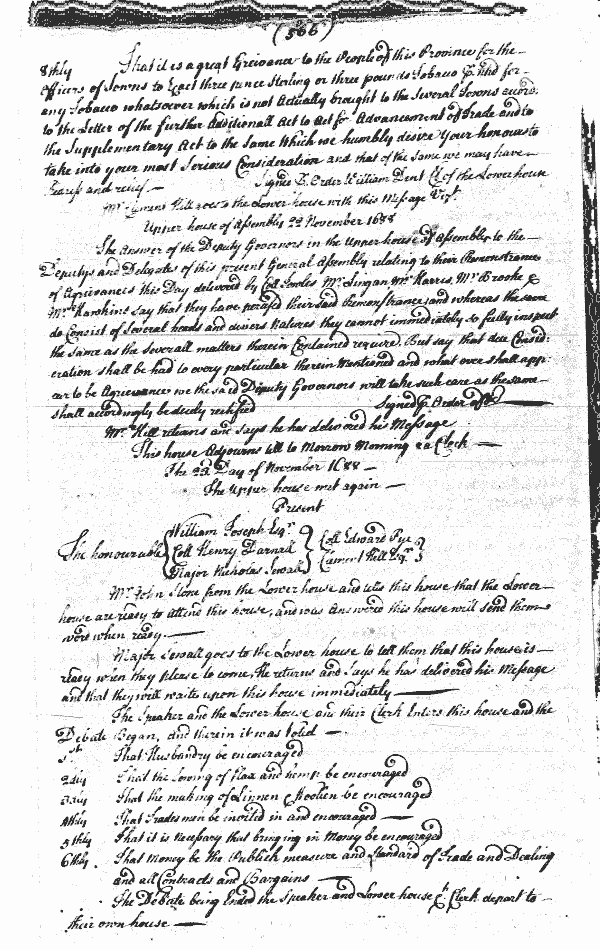 (566)
8thly That it is a great Grievance to the People of this Province for the
officers of Towns to Exact three pence Sterling or three pounds Tobacco P. hhd for
any Tobacco whatsoever which is not Actually brought to the Severall Towns
to the Letter of the further Additionall Act to Act for Advancement of Trade and to
the Supplementary Act to the Same Which we humbly desire Your honours to
take into your most Serious Consideration and that of the Same we may have
redress and relief.
Signed P. Order William Dent Cl of the Lower house
Mr. Clement Hill goes to the Lower house with this Message Vizt.
Upper house of Assembly 22d November 1688
The Answer of the Deputy Governors in the Upper house of Assembly to the
Deputys and Delegates of this present General Assembly relating to their Remonstrance
of Agrievances this Day delivered by Coll Mr. Lingan Mr. Harris Mr. Brooke &
Mr. Hawkins Say that they have perused their said Remonstrance, and whereas the same
do Consist of Several heads and divers Natures they cannot immediately so fully inspect
the same as the Severall matters therein Contained require. But say that due Consid:
eration Shall be had to every particular therein Mentioned and what ever shall app:
ear to be Agrievance we the said Deputy Governors will take such care as the same
shall accordingly be duely rectified Signed P. Order
Mr. Hill returns and Says he has delivered his Message
This house Adjourns till to Morrow Morning 8 a Clock
The 23d Day of November 1688
The Upper house met again
Present
The honourable { William Joseph Esqr. } Coll Edward Pye
Coll Henry Darnall Clement Hill Esqr. }
Major Nicholas Sewall
Mr. John Stone from the Lower house and tells this house that the Lower
house are ready to Attend this house, and was Answered this house will send them
word when ready.
Major Sewall goes to the Lower house to tell them that this house is
ready when they please to come, He returns and Says he has delivered his Message
and that they will waite upon this house immediately
The Speaker and the Lower house and their Clerk Enters this house and the
Debate Began, and therein it was Voted
1st. That Husbandry be encouraged
2dly That the Sowing of flax and hemp be encouraged
3dly That the making of Linnen & Woollen be encouraged
4thly That Tradesmen be invited in and encouraged
5thly That it is Necessary that bringing in Money be encouraged
6thly. That Money be the Publick measure and Standard of Trade and Dealing
and all Contracts and Bargains
The Debate being Ended the Speaker and Lower house & Clerk depart to
their own house